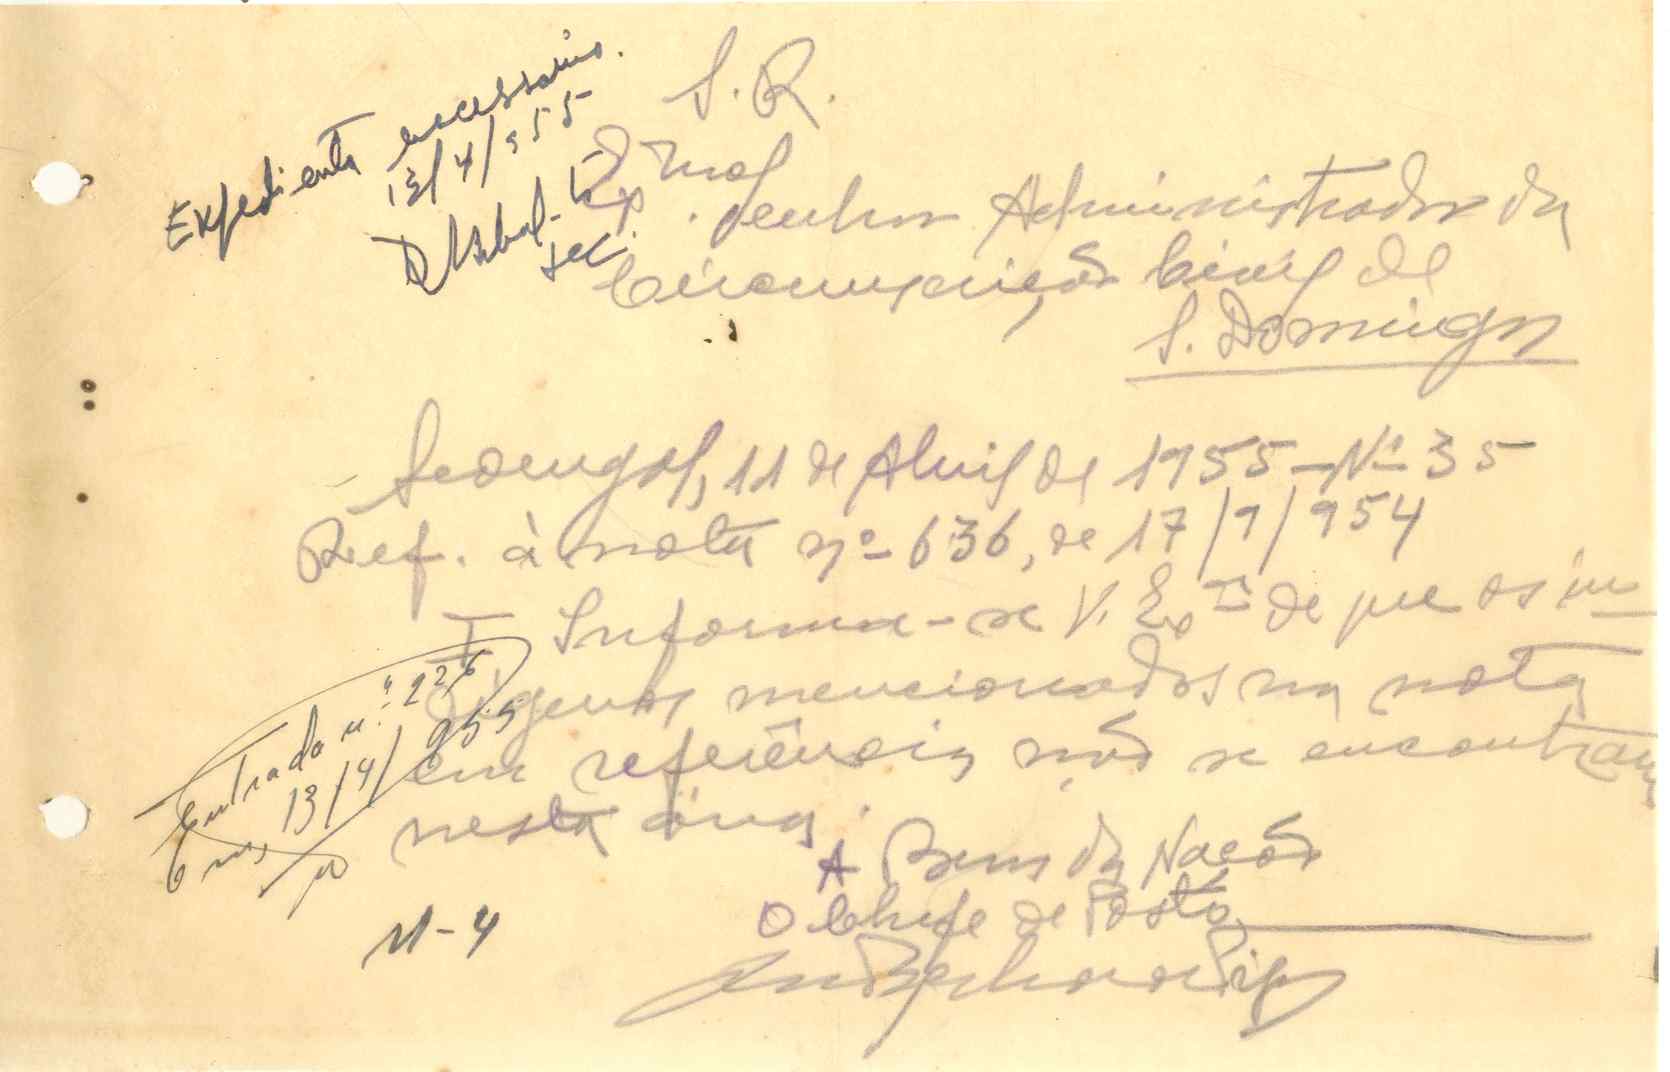 Expediente necessario.
13/4/955
S. R.
Exmo. Senhor Administrador da
Circunscrição Civil de
S. Domingos
Sedengal, 11 de Abril de 1955 - Nº 35
Ref. à nota nº 636, de 17/9/954
I Informa-se V. Exª de que os in-
dígenas mencionados na nota
em referência não se encontram
nesta área.
A Bem da Nação
O Chefe de Posto
Entrada n.º 226
Em, 13/4/955
M-4